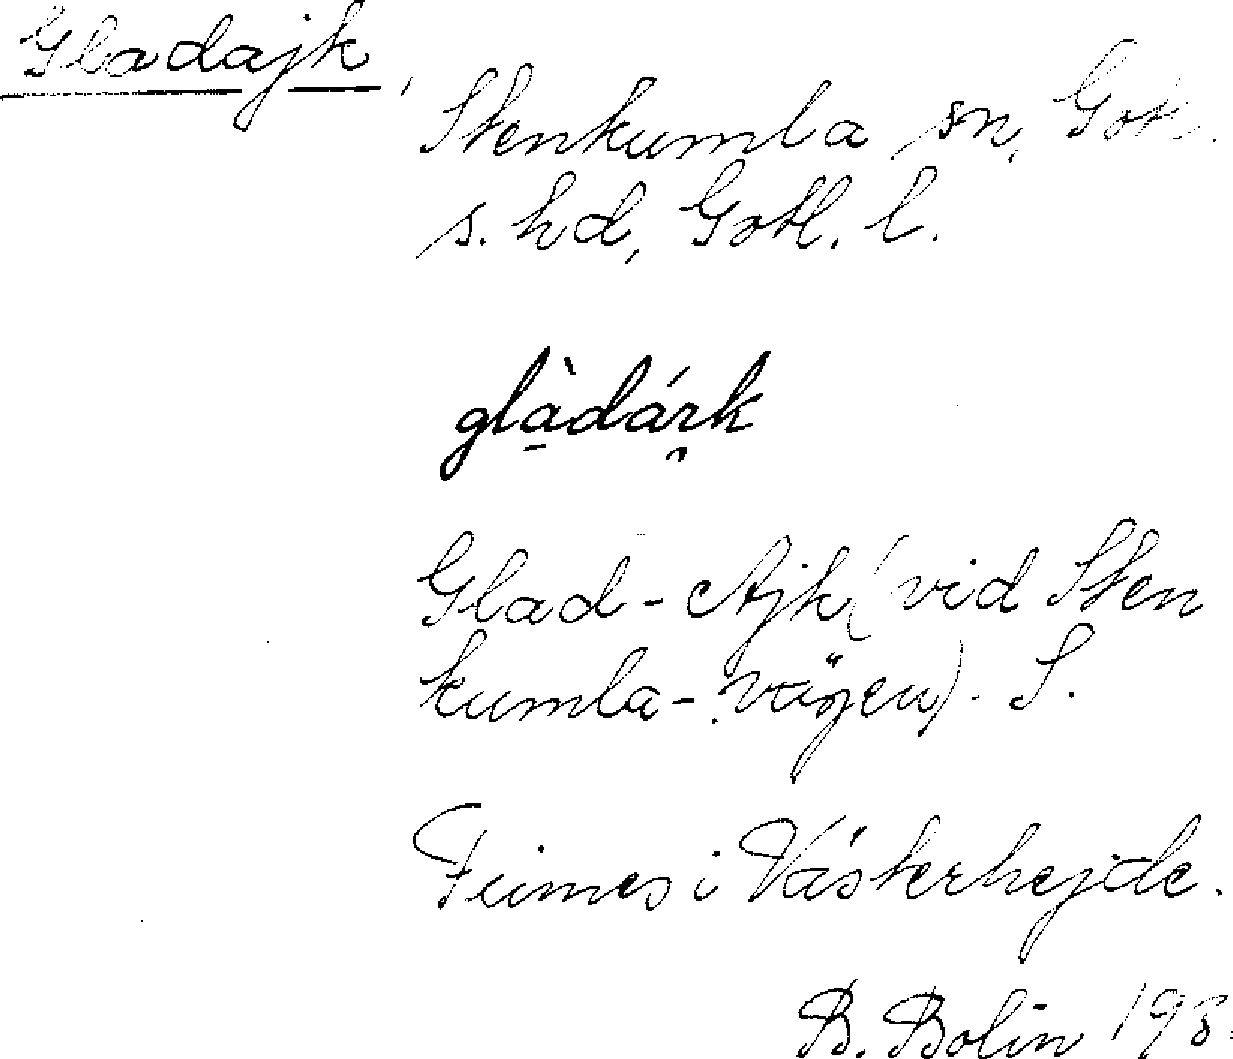 Gladajk,
Stenkumla sn, Gotl.
s. hd, Gotl. l.
glàdárk
Glad-Ajk (vid Sten
kumla-vägen). S.
i Västerhejde.
B. Bolin 193